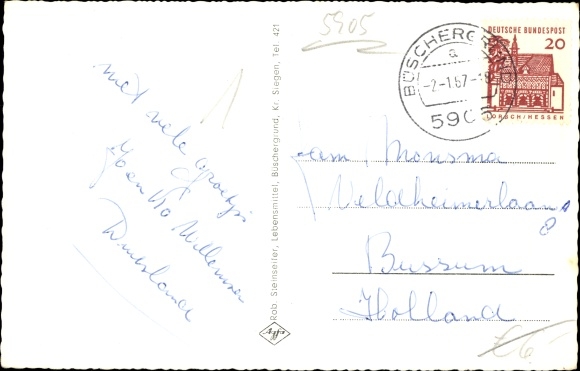 met vele groetjes
Duitsland
Rob. Steinseifer, Lebensmittel, Büschergrund, Kr. Siegen, Tel. 421
5905
BÜSCHERGRUND
a
-2-1.67-18
5905
DEUTSCHE BUNDESPOST
20
LORSCH/HESSEN
fam Monsma
Veldheimerlaan
8
Bussum
Holland